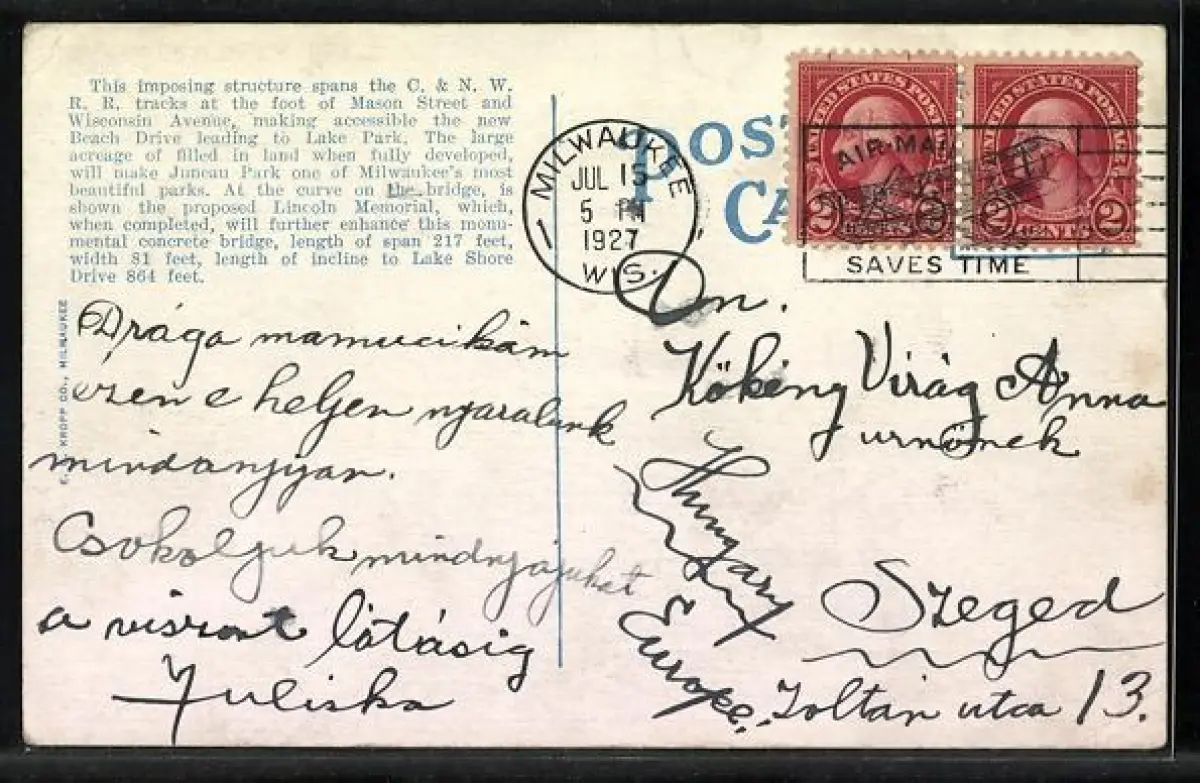 This imposing structure spans the C. & N. W.
R. R. tracks at the foot of Mason Street and
Wisconsin Avenue, making accessible the new
Beach Drive leading to Lake Park. The large
acreage of filled in land when fully developed,
will make Juneau Park one of Milwaukee's most
beautiful parks. At the curve on the bridge, is
shown the proposed Lincoln Memorial, which,
when completed, will further enhance this monu-
mental concrete bridge, length of span 217 feet,
width 81 feet, length of incline to Lake Shore
Drive 864 feet.
KROPP CO., MILWAUKEE
Drága mamucikám
ezen e heljen njaralunk
mindanjyan.
Csokoljuk mindnyájukat
a viszont látásig
Juliska
POST
CA
MILWAUKEE
JUL 15
5 PM
1927
WIS.
UNITED STATES POSTAGE
2 CENTS 2
UNITED STATES POSTAGE
2 CENTS 2
AIR MAI
SAVES TIME
Ön.
Kökény Virág Anna
urnőnek
Hungary
Europe.
Szeged
Zoltán utca 13.